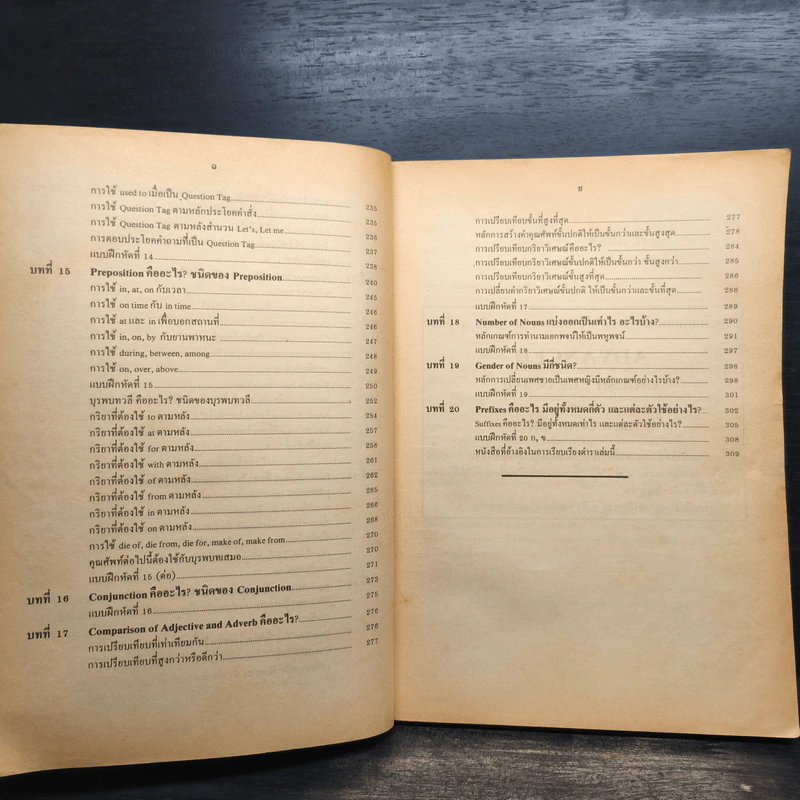 การใช้ used to เมื่อเป็น Question Tag 235
การใช้ Question Tag ตามหลักประโยคคำสั่ง 235
การใช้ Question Tag ตามหลังสำนวน Let's, Let me 236
การตอบประโยคคำถามที่เป็น Question Tag 237
แบบฝึกหัดที่ 14 238
บทที่ 15 Preposition คืออะไร? ชนิดของ Preposition 240
การใช้ in, at, on กับเวลา 245
การใช้ on time กับ in time 246
การใช้ at และ in เพื่อบอกสถานที่ 246
การใช้ in, on, by กับยานพาหนะ 247
การใช้ during, between, among 248
การใช้ on, over, above 249
แบบฝึกหัดที่ 15 250
บุรพบทวลี คืออะไร? ชนิดของบุรพบทวลี 252
กริยาที่ต้องใช้ to ตามหลัง 254
กริยาที่ต้องใช้ at ตามหลัง 256
กริยาที่ต้องใช้ for ตามหลัง 258
กริยาที่ต้องใช้ with ตามหลัง 261
กริยาที่ต้องใช้ of ตามหลัง 262
กริยาที่ต้องใช้ from ตามหลัง 265
กริยาที่ต้องใช้ in ตามหลัง 266
กริยาที่ต้องใช้ on ตามหลัง 268
การใช้ die of, die from, die for, make of, make from 270
คุณศัพท์ต่อไปนี้ต้องใช้กับบุรพบทเสมอ 270
แบบฝึกหัดที่ 15 (ต่อ) 271
บทที่ 16 Conjunction คืออะไร? ชนิดของ Conjunction 273
แบบฝึกหัดที่ 16 275
บทที่ 17 Comparison of Adjective and Adverb คืออะไร? 276
การเปรียบเทียบที่เท่าเทียมกัน 276
การเปรียบเทียบที่สูงกว่าหรือดีกว่า 277
ซ
การเปรียบเทียบขั้นที่สูงที่สุด 277
หลักการสร้างคำคุณศัพท์ขั้นปกติให้เป็นขั้นกว่าและขั้นสูงสุด 278
การเปรียบเทียบกริยาวิเศษณ์คืออะไร? 284
การเปรียบเทียบกริยาวิเศษณ์ขั้นปกติให้เป็นขั้นกว่า ขั้นสูงกว่า 285
การเปรียบเทียบกริยาวิเศษณ์ขั้นสูงที่สุด 286
การเปลี่ยนคำกริยาวิเศษณ์ขั้นปกติ ให้เป็นขั้นกว่าและขั้นที่สุด 286
แบบฝึกหัดที่ 17 289
บทที่ 18 Number of Nouns แบ่งออกเป็นเท่าไร อะไรบ้าง? 290
หลักเกณฑ์การทำนามเอกพจน์ให้เป็นพหูพจน์ 291
แบบฝึกหัดที่ 18 297
บทที่ 19 Gender of Nouns มีกี่ชนิด? 298
หลักการเปลี่ยนเพศชายเป็นเพศหญิงมีหลักเกณฑ์อย่างไรบ้าง? 298
แบบฝึกหัดที่ 19 301
บทที่ 20 Prefixes คืออะไร มีอยู่ทั้งหมดกี่ตัว และแต่ละตัวใช้อย่างไร? 302
Suffixes คืออะไร? มีอยู่ทั้งหมดเท่าไร และแต่ละตัวใช้อย่างไร? 305
แบบฝึกหัดที่ 20 ก, ข 308
หนังสือที่อ้างอิงในการเรียบเรียงตำราเล่มนี้ 309